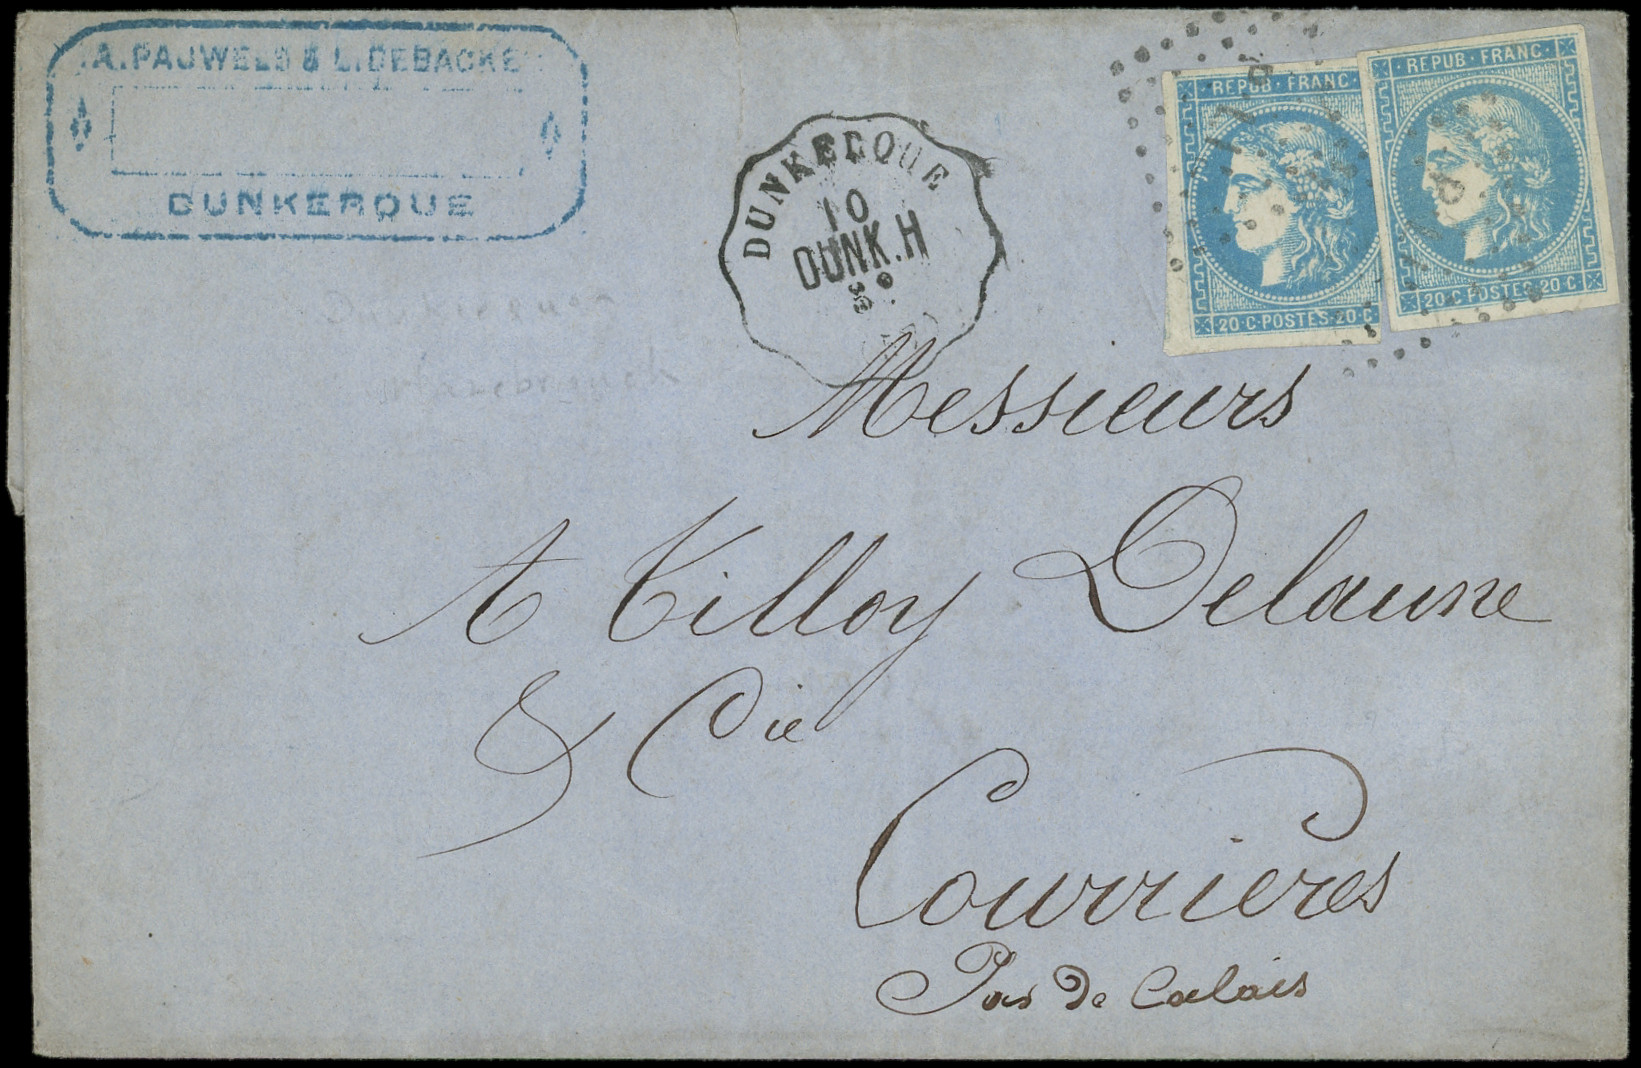 A. PAUWELS & L. DEBACKE
DUNKERQUE
DUNKERQUE
10
DUNK.H
3º
REPUB · FRANC ·
20 · C · POSTES · 20 · C
· REPUB · FRANC ·
20 · C · POSTES · 20 · C
Messieurs
A Tilloy Delaune
& Cie
Courrieres
Pas de Calais
Dunkerque